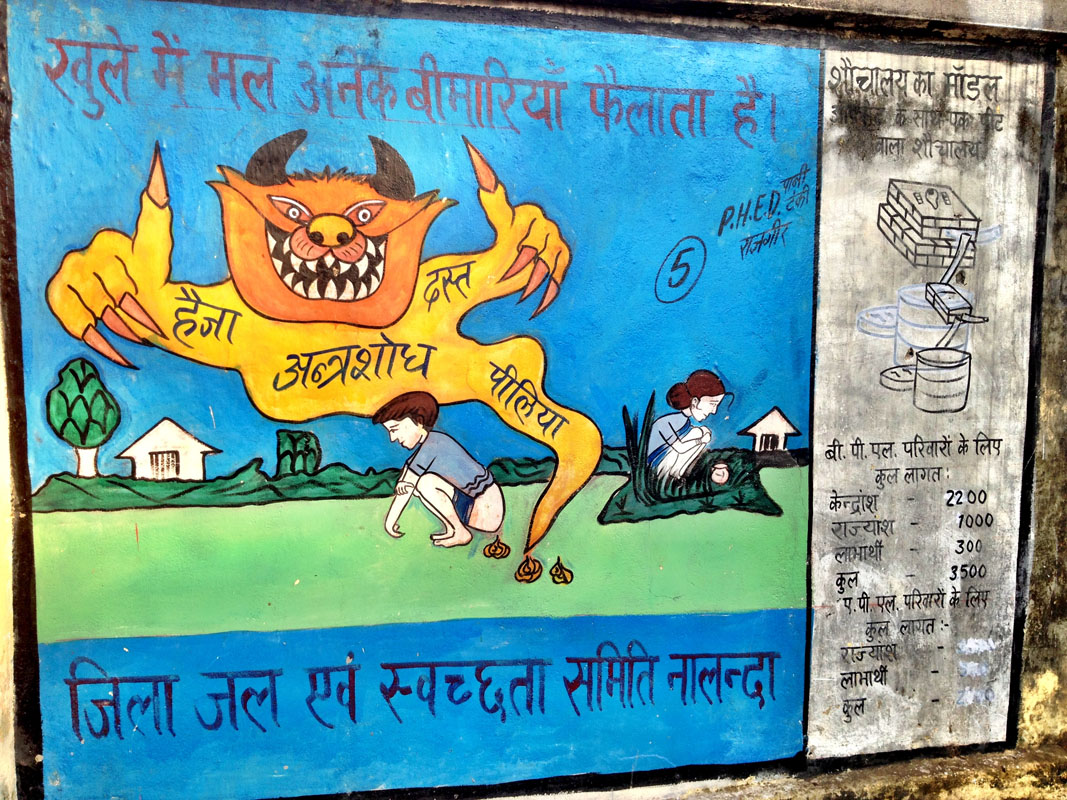 खुले में मल अनेक बीमारियाँ फैलाता है।
P.H.E.D. पानी टंकी
राजगीर
5
हैजा
दस्त
अन्त्रशोध
पीलिया
जिला जल एवं स्वच्छता समिति नालन्दा
शौचालय का मॉडल
के साथ एक पीट
वाला शौचालय
बी. पी. एल. परिवारों के लिए
कुल लागत :
केन्द्रांश - 2200
राज्यांश - 1000
लाभार्थी - 300
कुल - 3500
ए. पी. एल. परिवारों के लिए
कुल लागत :-
राज्यांश -
लाभार्थी -
कुल -